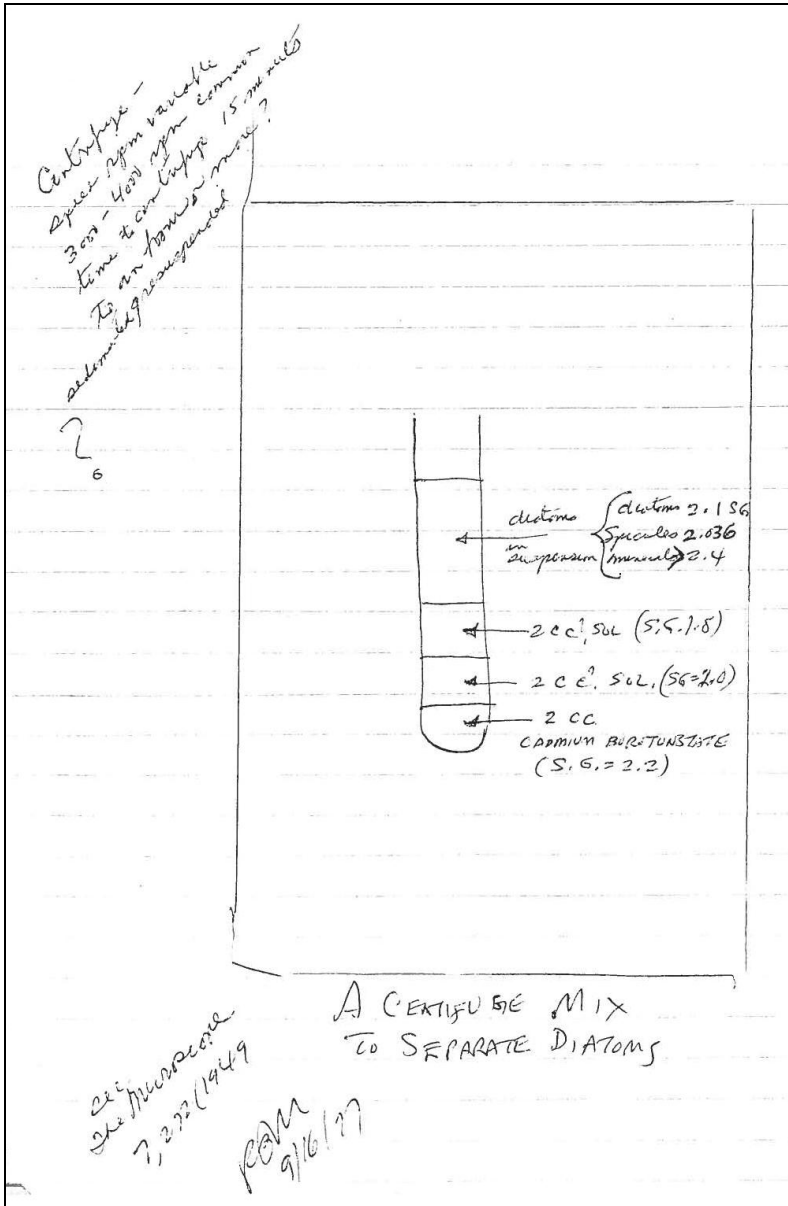 Centrifuge -
speed rpm variable
3000 - 4000 rpm common
time to centrifuge 15 minutes
to an hour or more?
resuspended
6
diatoms
in
suspension
diatoms 2.1 SG
Spicules 2.036
minerals > 2.4
2 CC, SOL (S.G. 1.8)
2 CC, SOL. (SG=2.0)
2 CC.
CADMIUM BOROTUNSTATE
(S.G. = 2.2)
A CENTIFUGE MIX
TO SEPARATE DIATOMS
The Microscope
7, 272 (1949
9/16/77